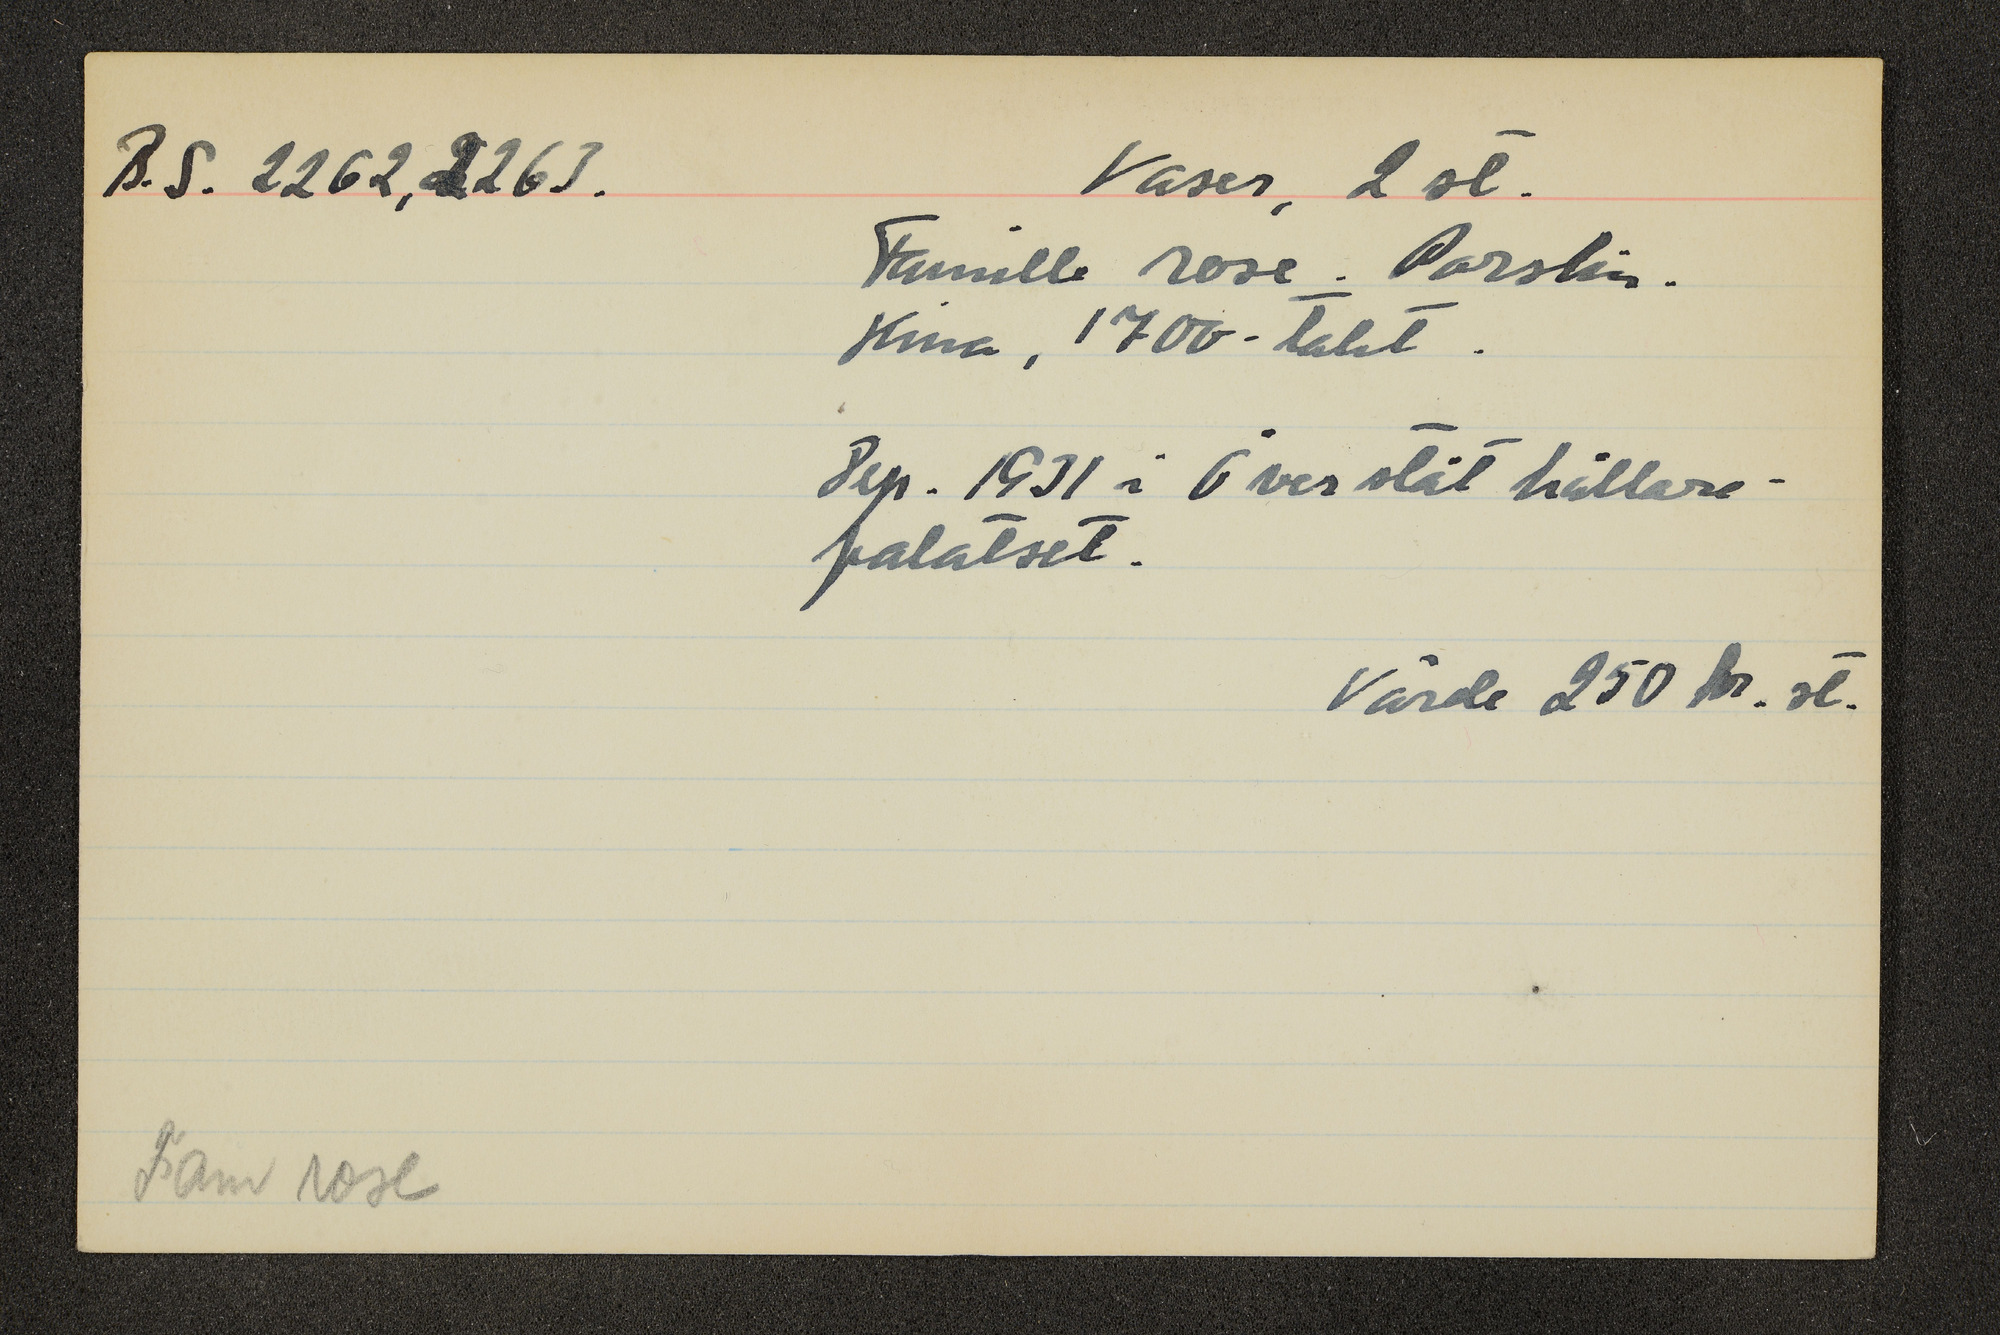 B.S. 2262, 2263. Vaser, 2 st.
Famille rose. Porslin.
Kina, 1700-talet.
Dep. 1931 i Överståthållare-
palatset.
Värde 250 kr. st.
Fam rose